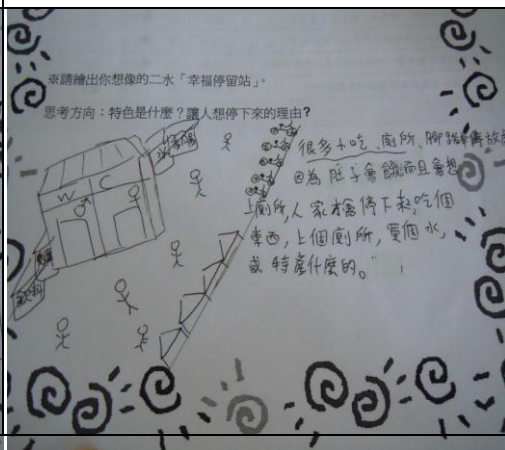 ※請繪出你想像的二水「幸福停留站」。
思考方向：特色是什麼？讓人想停下來的理由?
很多小吃、廁所、腳踏車放
因為肚子會餓而且會想
上廁所,人家才會停下來,吃個
東西,上個廁所,買個水,
或特產什麼的。
W C
飲料